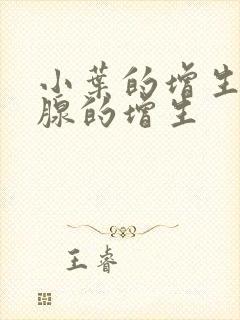 小叶的增生
腺的增生
王睿